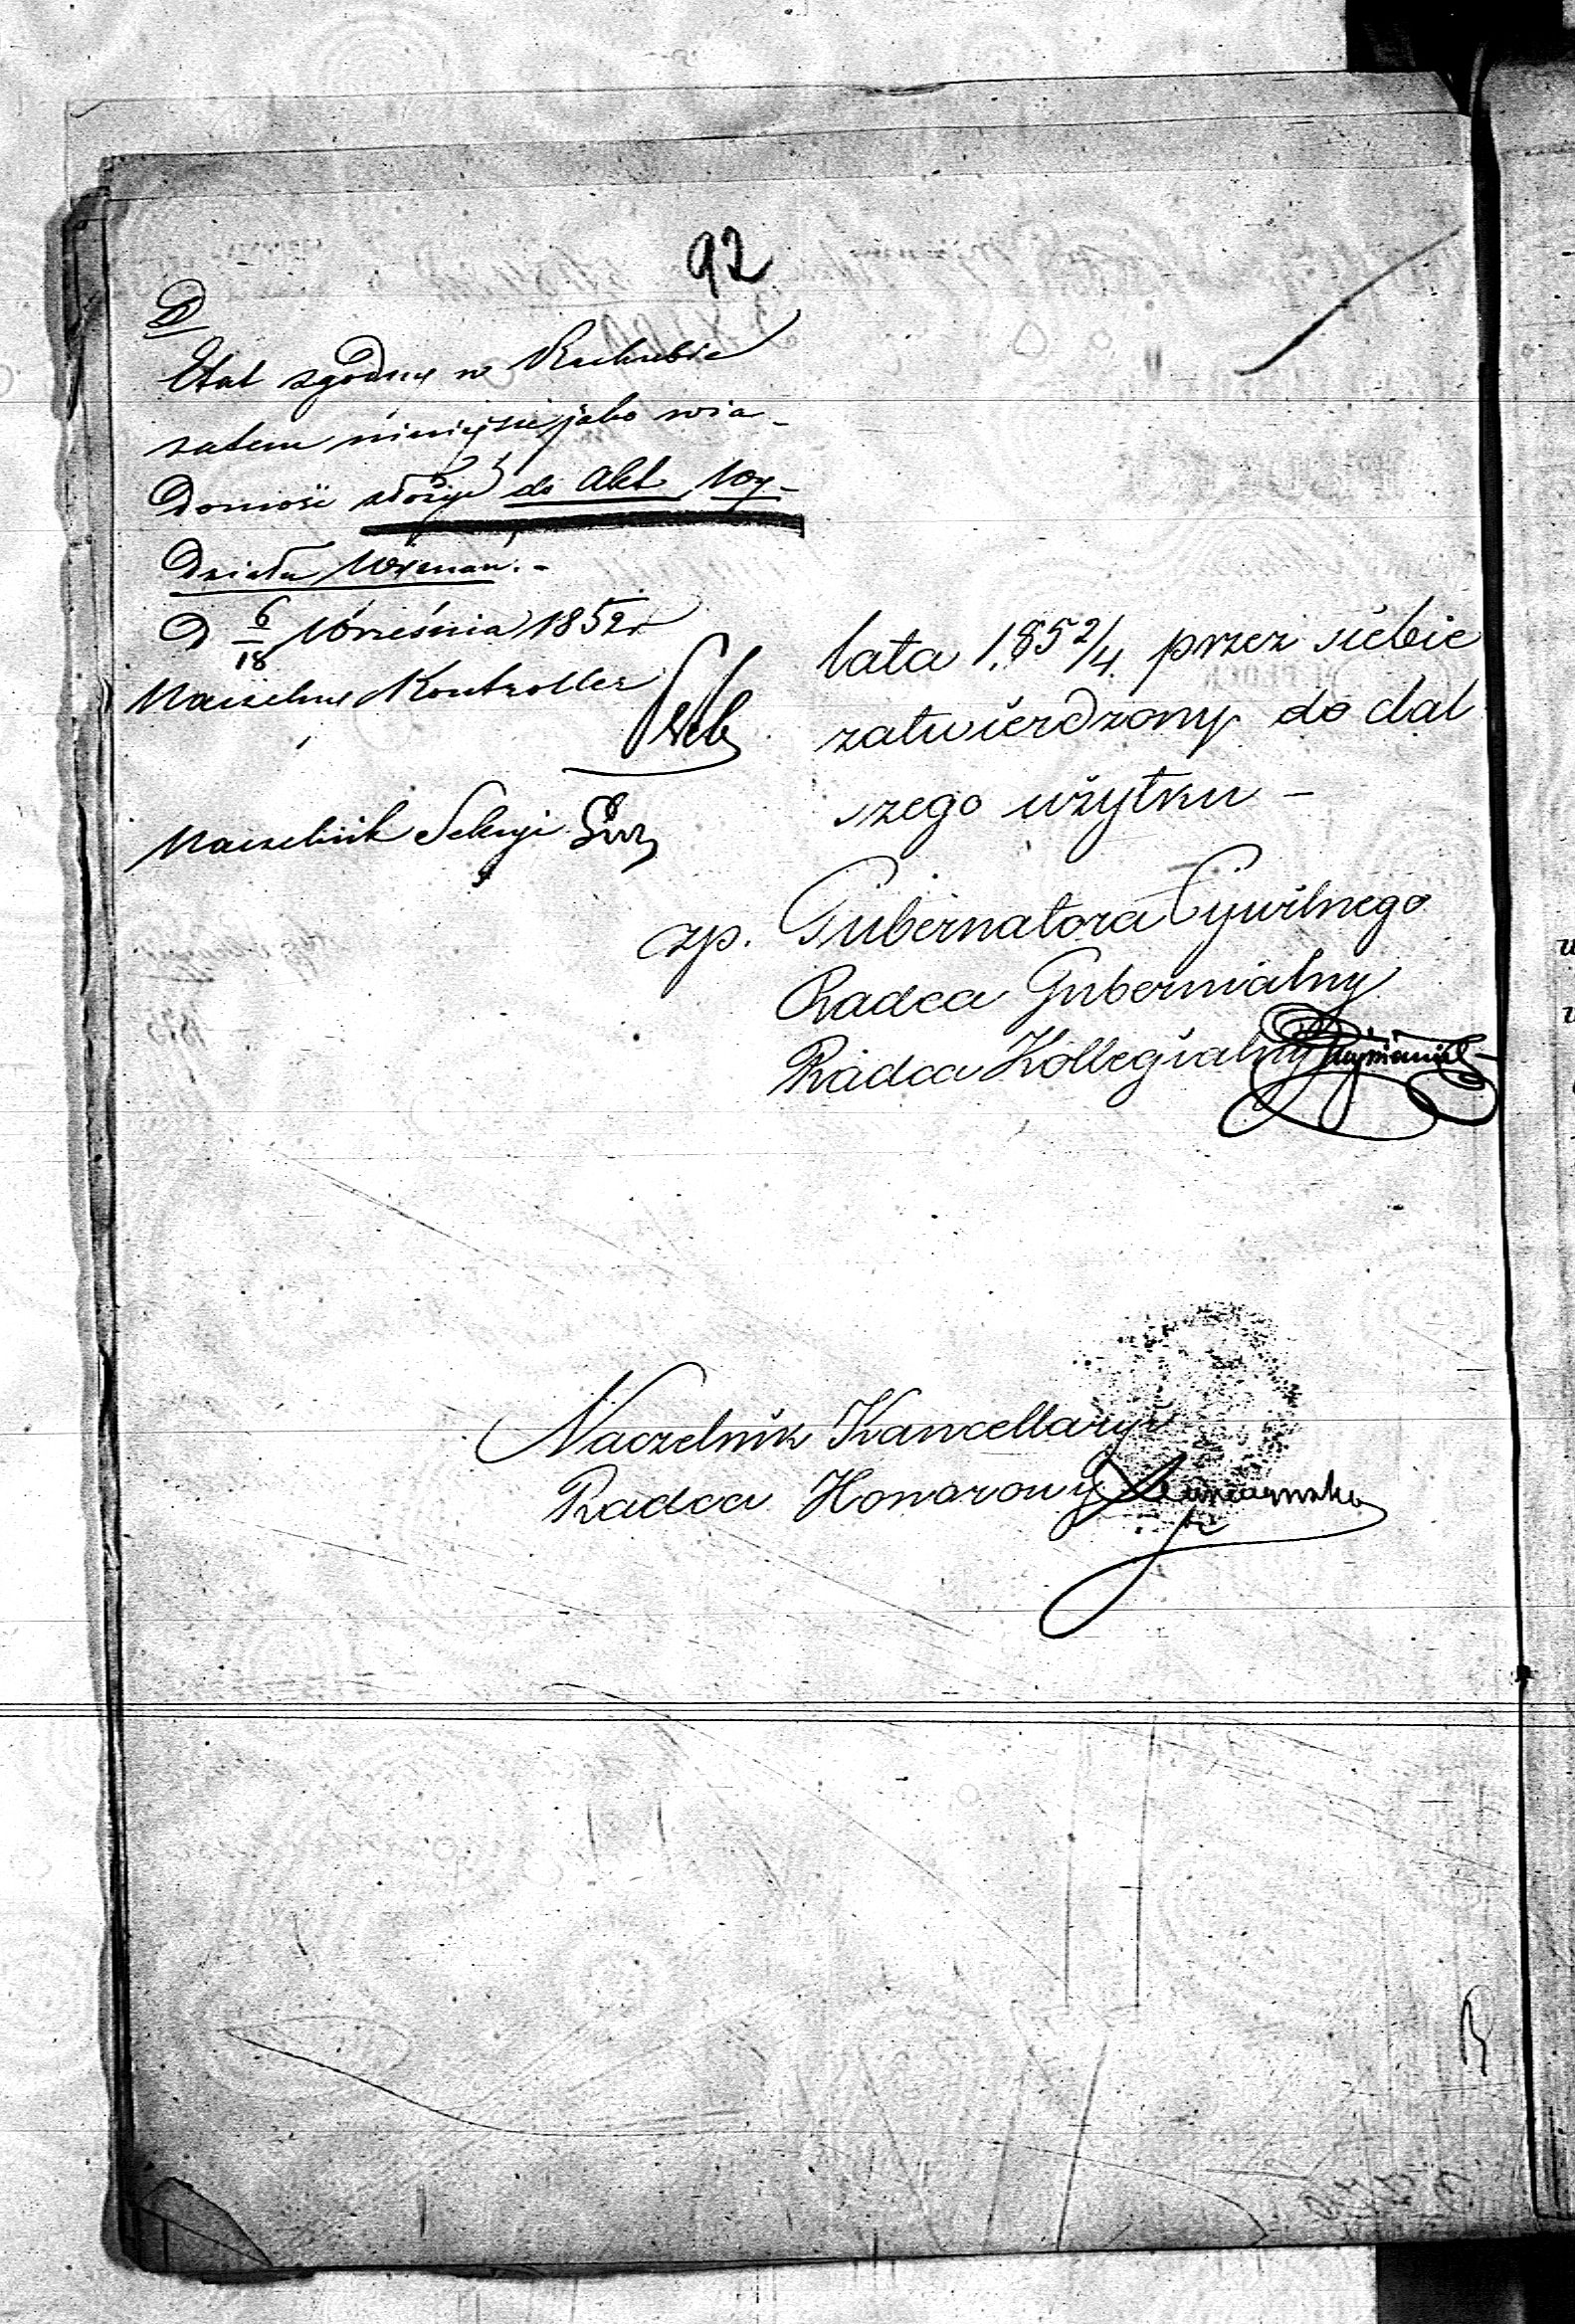 92
D
Etat zgodny w Rachubie
zatem niniejsze jako wia-
domość złożyć do Akt Wy-
działu Wyznań. -
D 6/18 Września 1852 r.
Naczelny Kontroller
Naczelnik Sekcyi
lata 1852/4 przez siebie
zatwierdzony do dal
szego użytku -
zp. Gubernatora Cywilnego
Radca Gubernialny
Radca Kollegialny
Naczelnik Kancellaryi
Radca Honorowy